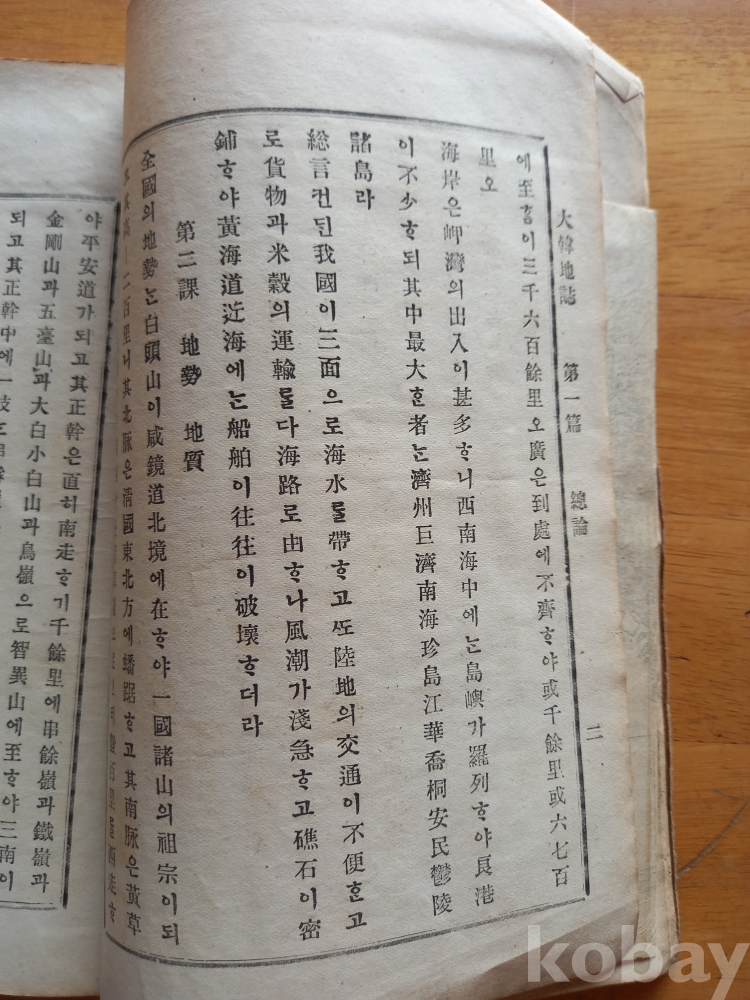 大韓地誌 第一篇 總論 二
에至ᄒᆞᆷ이三千六百餘里오廣은到處에不齊ᄒᆞ야或千餘里或六七百
里오
海岸은岬灣의出入이甚多ᄒᆞ니西南海中에ᄂᆞᆫ島嶼가羅列ᄒᆞ야良港
이不少ᄒᆞ되其中最大ᄒᆞᆫ者ᄂᆞᆫ濟州巨濟南海珍島江華喬桐安民鬱陵
諸島라
總言컨ᄃᆡᆫ我國이三面으로海水ᄅᆞᆯ帶ᄒᆞ고ᄯᅩ陸地의交通이不便ᄒᆞᆫ고
로貨物과米穀의運輸ᄅᆞᆯ다海路로由ᄒᆞ나風潮가淺急ᄒᆞ고礁石이密
鋪ᄒᆞ야黃海道近海에ᄂᆞᆫ船舶이往往이破壞ᄒᆞ더라
第三課 地勢 地質
全國의地勢ᄂᆞᆫ白頭山이咸鏡道北境에在ᄒᆞ야一國諸山의祖宗이되
其高ㅣ二百里니其北脈은淸國東北方에蟠踞ᄒᆞ고其南脈은黃草
야平安道가되고其正幹은直히南走ᄒᆞ기千餘里에串餘嶺과鐵嶺과
金剛山과五臺山과大白小白山과鳥嶺으로智異山에至ᄒᆞ야三南이
되고其正幹中에一枝
kobay